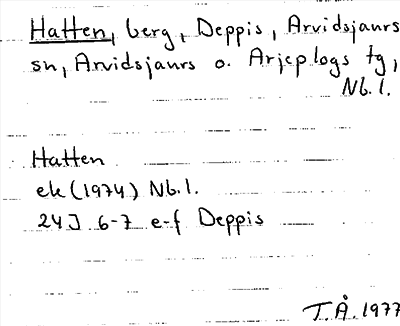 Hatten, berg, Deppis, Arvidsjaurs
sn, Arvidsjaurs o. Arjeplogs tg,
Nb.l.
Hatten
ek (1974) Nb.l.
24J 6-7 e-f Deppis
T.Å. 1977